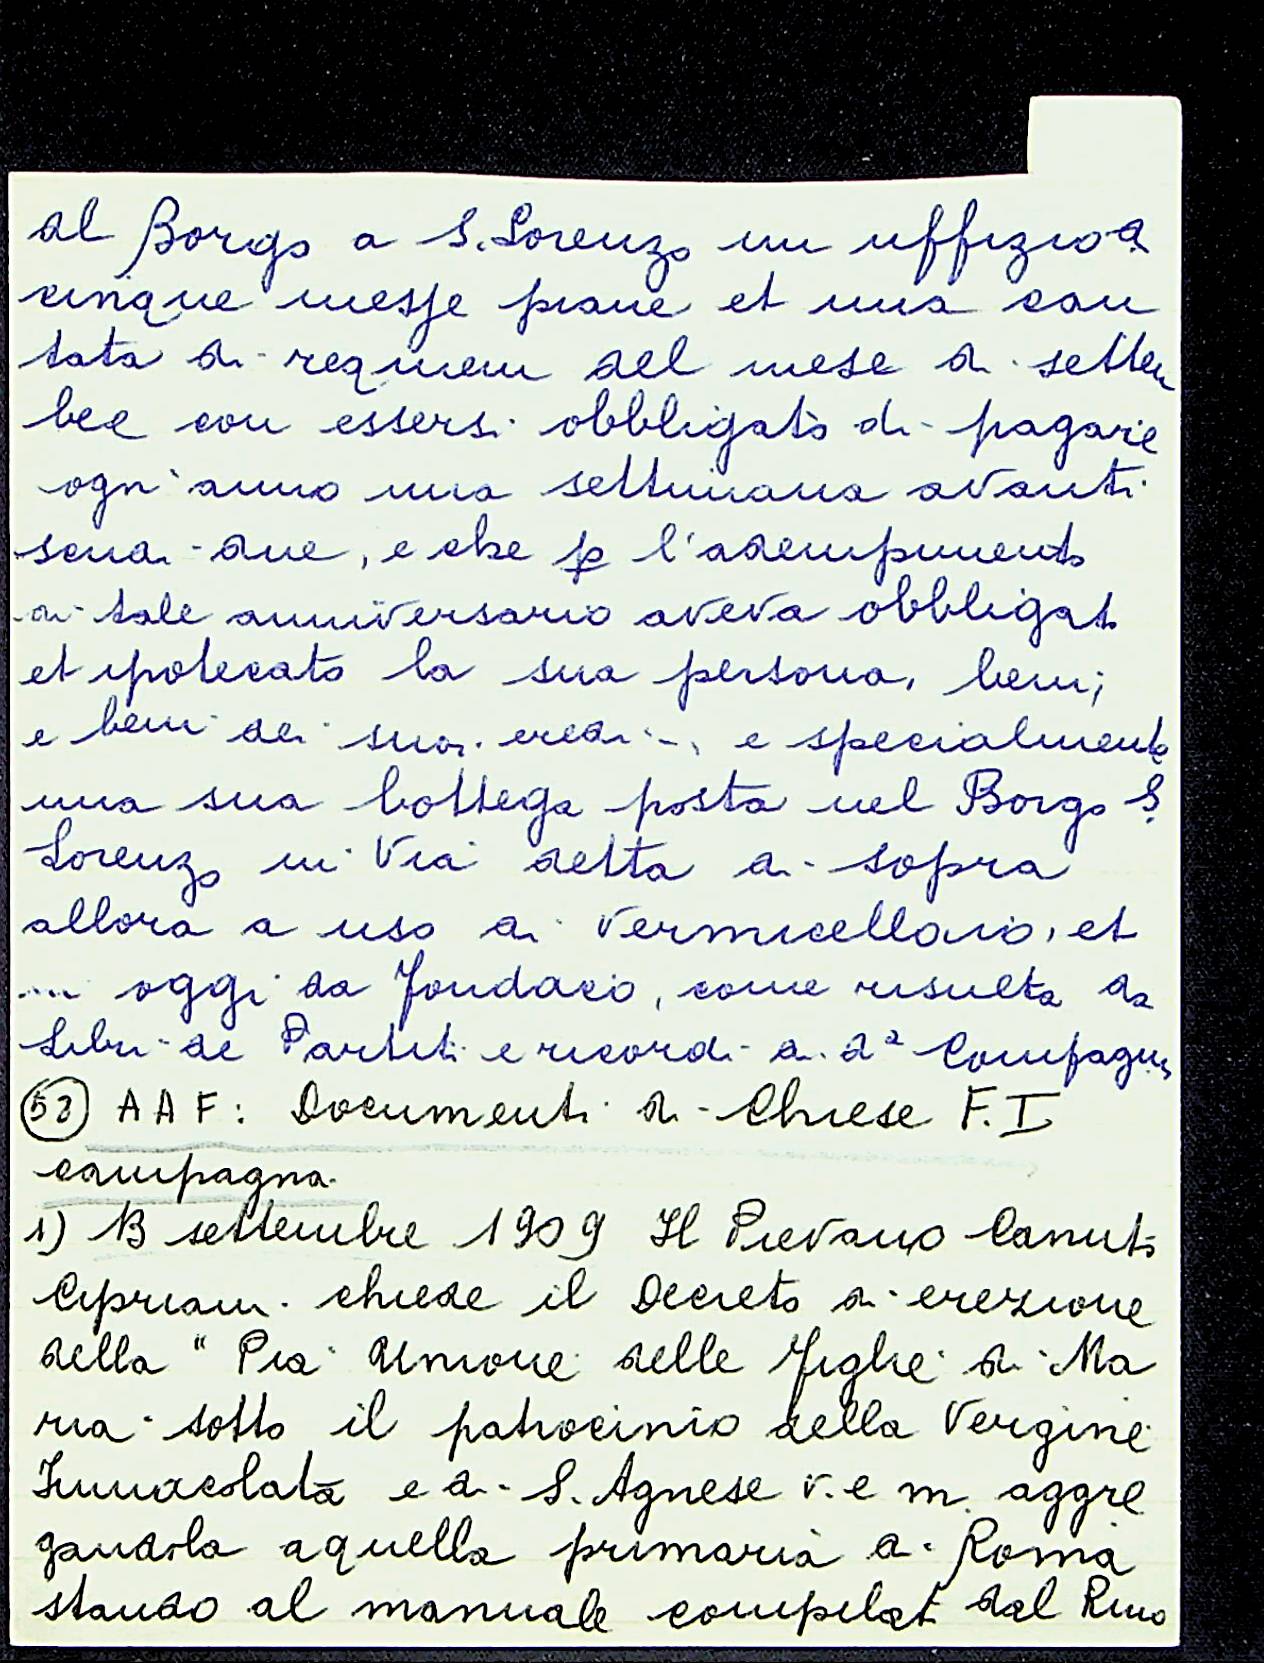 al Borgo a S. Lorenzo un uffizio a
cinque messe piane et una can
tata di requiem del mese di settem
bre con essersi obbligato di pagare
ogn'anno una settimana avanti
scudi due, e che p l'adempimento
di tale anniversario aveva obbligat
et ipotecato la sua persona, beni,
e beni dei suoi eredi..., e specialmente
una sua bottega posta nel Borgo S.
Lorenzo in Via detta di sopra
allora a uso di vermicellaio, et
... oggi da fondaco, come risulta da
Libri de Partiti e ricordi di da Compagnia
AAF: Documenti di Chiese F. I
campagna.
1) 13 settembre 1909 Il Pievano Canuto
Cipriani chiede il Decreto di erezione
della "Pia Unione delle Figlie di Ma
ria sotto il patrocinio della Vergine
Immacolata e di S. Agnese v. e m. aggre
gandola a quella primaria di Roma
stando al manuale compilat dal Rmo